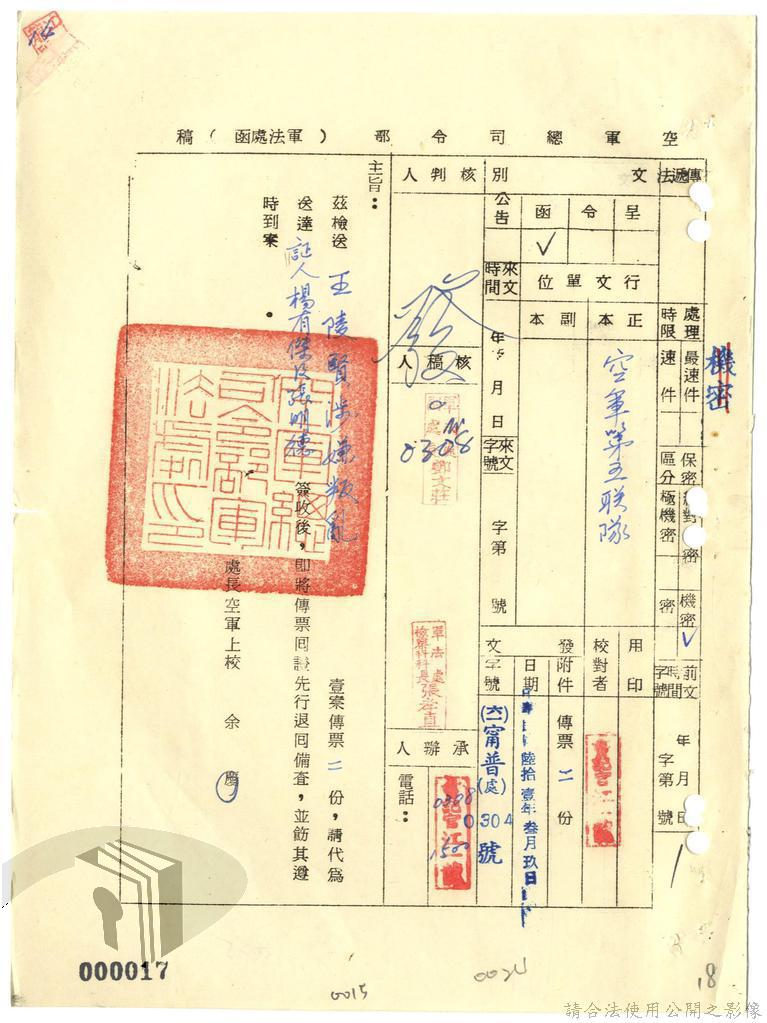 空軍總司令部(軍法處函)稿
機密
傳遞法
文別
核判人
呈
令
函
公告
✓
處理時限
最速件
速件
行文單位
正本
副本
空軍第五联隊
來文時間
年 月 日
來文字號
字第 號
保密區分
絕對機密
極機密
機密
密
✓
前文
時間
字號
年 月 日
字第 號
用印
校對者
發文
附件
傳票二份
日期
陸拾壹年叁月玖日
字號
(六一)甯普(處)0304號
發
核稿人
0308
軍法處
檢察科科長張孝直
承辦人
0308
1500
電話:
主旨:
茲檢送王陵賢涉嫌叛亂壹案傳票二份,請代為
送達証人楊有傑及張明德簽收後,即將傳票回證先行退回備查,並飭其遵
時到案。
處長空軍上校 余慶
000017
0015
0024
18
請合法使用公開之影像